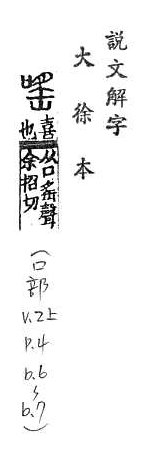 說文解字
大徐本
嗂
喜也
从口䍃聲
余招切
(口部
v.2上
p.4
b.6
~
b.7)